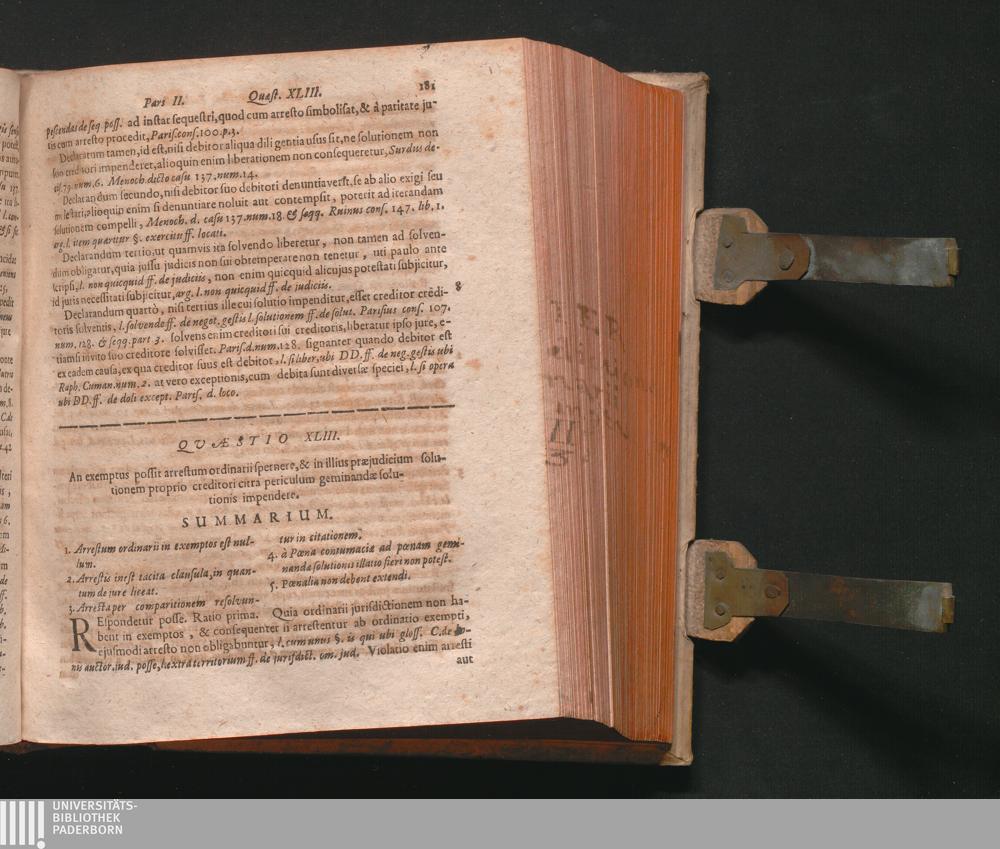 Pars II. Quæst. XLIII. 181
ad instar sequestri, quod cum arresto simbolisat, & à paritate ju-
ris cum arresto procedit, Paris. cons. 100. p. 3.
Declaratum tamen, id est, nisi debitor aliqua diligentia usus sit, ne solutionem non
impenderet, alioquin enim liberationem non consequeretur, Surdus de-
cis. 79. num. 6. Menoch. dicto casu 137. num. 14.
Declarandum secundo, nisi debitor suo debitori denuntiaverit, se ab alio exigi seu
molestari, alioquin enim si denuntiare noluit aut contempsit, poterit ad iterandam
solutionem compelli, Menoch. d. casu 137. num. 18. & seqq. Ruinus cons. 147. lib. 1.
arg. l. item quæritur §. exercitu ff. locati.
Declarandum tertio, ut quamvis ita solvendo liberetur, non tamen ad solven-
dum obligatur, quia jussui judicis non sui obtemperare non tenetur, uti paulo ante
scripsi, l. non quicquid ff. de judiciis, non enim quicquid alicujus potestati subjicitur,
id juris necessitati subjicitur, arg. l. non quicquid ff. de judiciis.
Declarandum quartò, nisi tertius ille cui solutio impenditur, esset creditor credi- 8
toris solventis, l. solvendo ff. de negot. gestis l. solutionem ff. de solut. Parisius cons. 107.
num. 128. & seqq. part 3. solvens enim creditori sui creditoris, liberatur ipso jure, e-
tiamsi invito suo creditore solvisset. Paris. d. num. 128. signanter quando debitor est
ex eadem causa, ex qua creditor suus est debitor, l. si liber, ubi DD. ff. de neg. gestis ubi
Raph. Cuman. num. 2. at vero exceptionis, cum debita sunt diversæ speciei, l. si opera
ubi DD. ff. de doli except. Paris. d. loco.
QVÆSTIO XLIII.
An exemptus possit arrestum ordinarii spernere, & in illius præjudicium solu-
tionem proprio creditori citra periculum geminandæ solu-
tionis impendere.
SUMMARIUM.
1. Arrestum ordinarii in exemptos est nul-
lum.
2. Arrestis inest tacita clausula, in quan-
tum de jure liceat.
3. Arresta per comparitionem resolvun-
tur in citationem.
4. à Pœna contumaciæ ad pœnam gemi-
nandæ solutionis illatio fieri non potest.
5. Pœnalia non debent extendi.
REspondetur posse. Ratio prima. Quia ordinarii jurisdictionem non ha-
bent in exemptos, & consequenter si arrestentur ab ordinatio exempti,
ejusmodi arresto non obligabuntur, l. cum unus §. is qui ubi gloss. C. de bo-
nis auctor. jud. posse, l. extra territorium ff. de jurisdict. om. jud. Violatio enim arresti
aut
UNIVERSITÄTS-
BIBLIOTHEK
PADERBORN